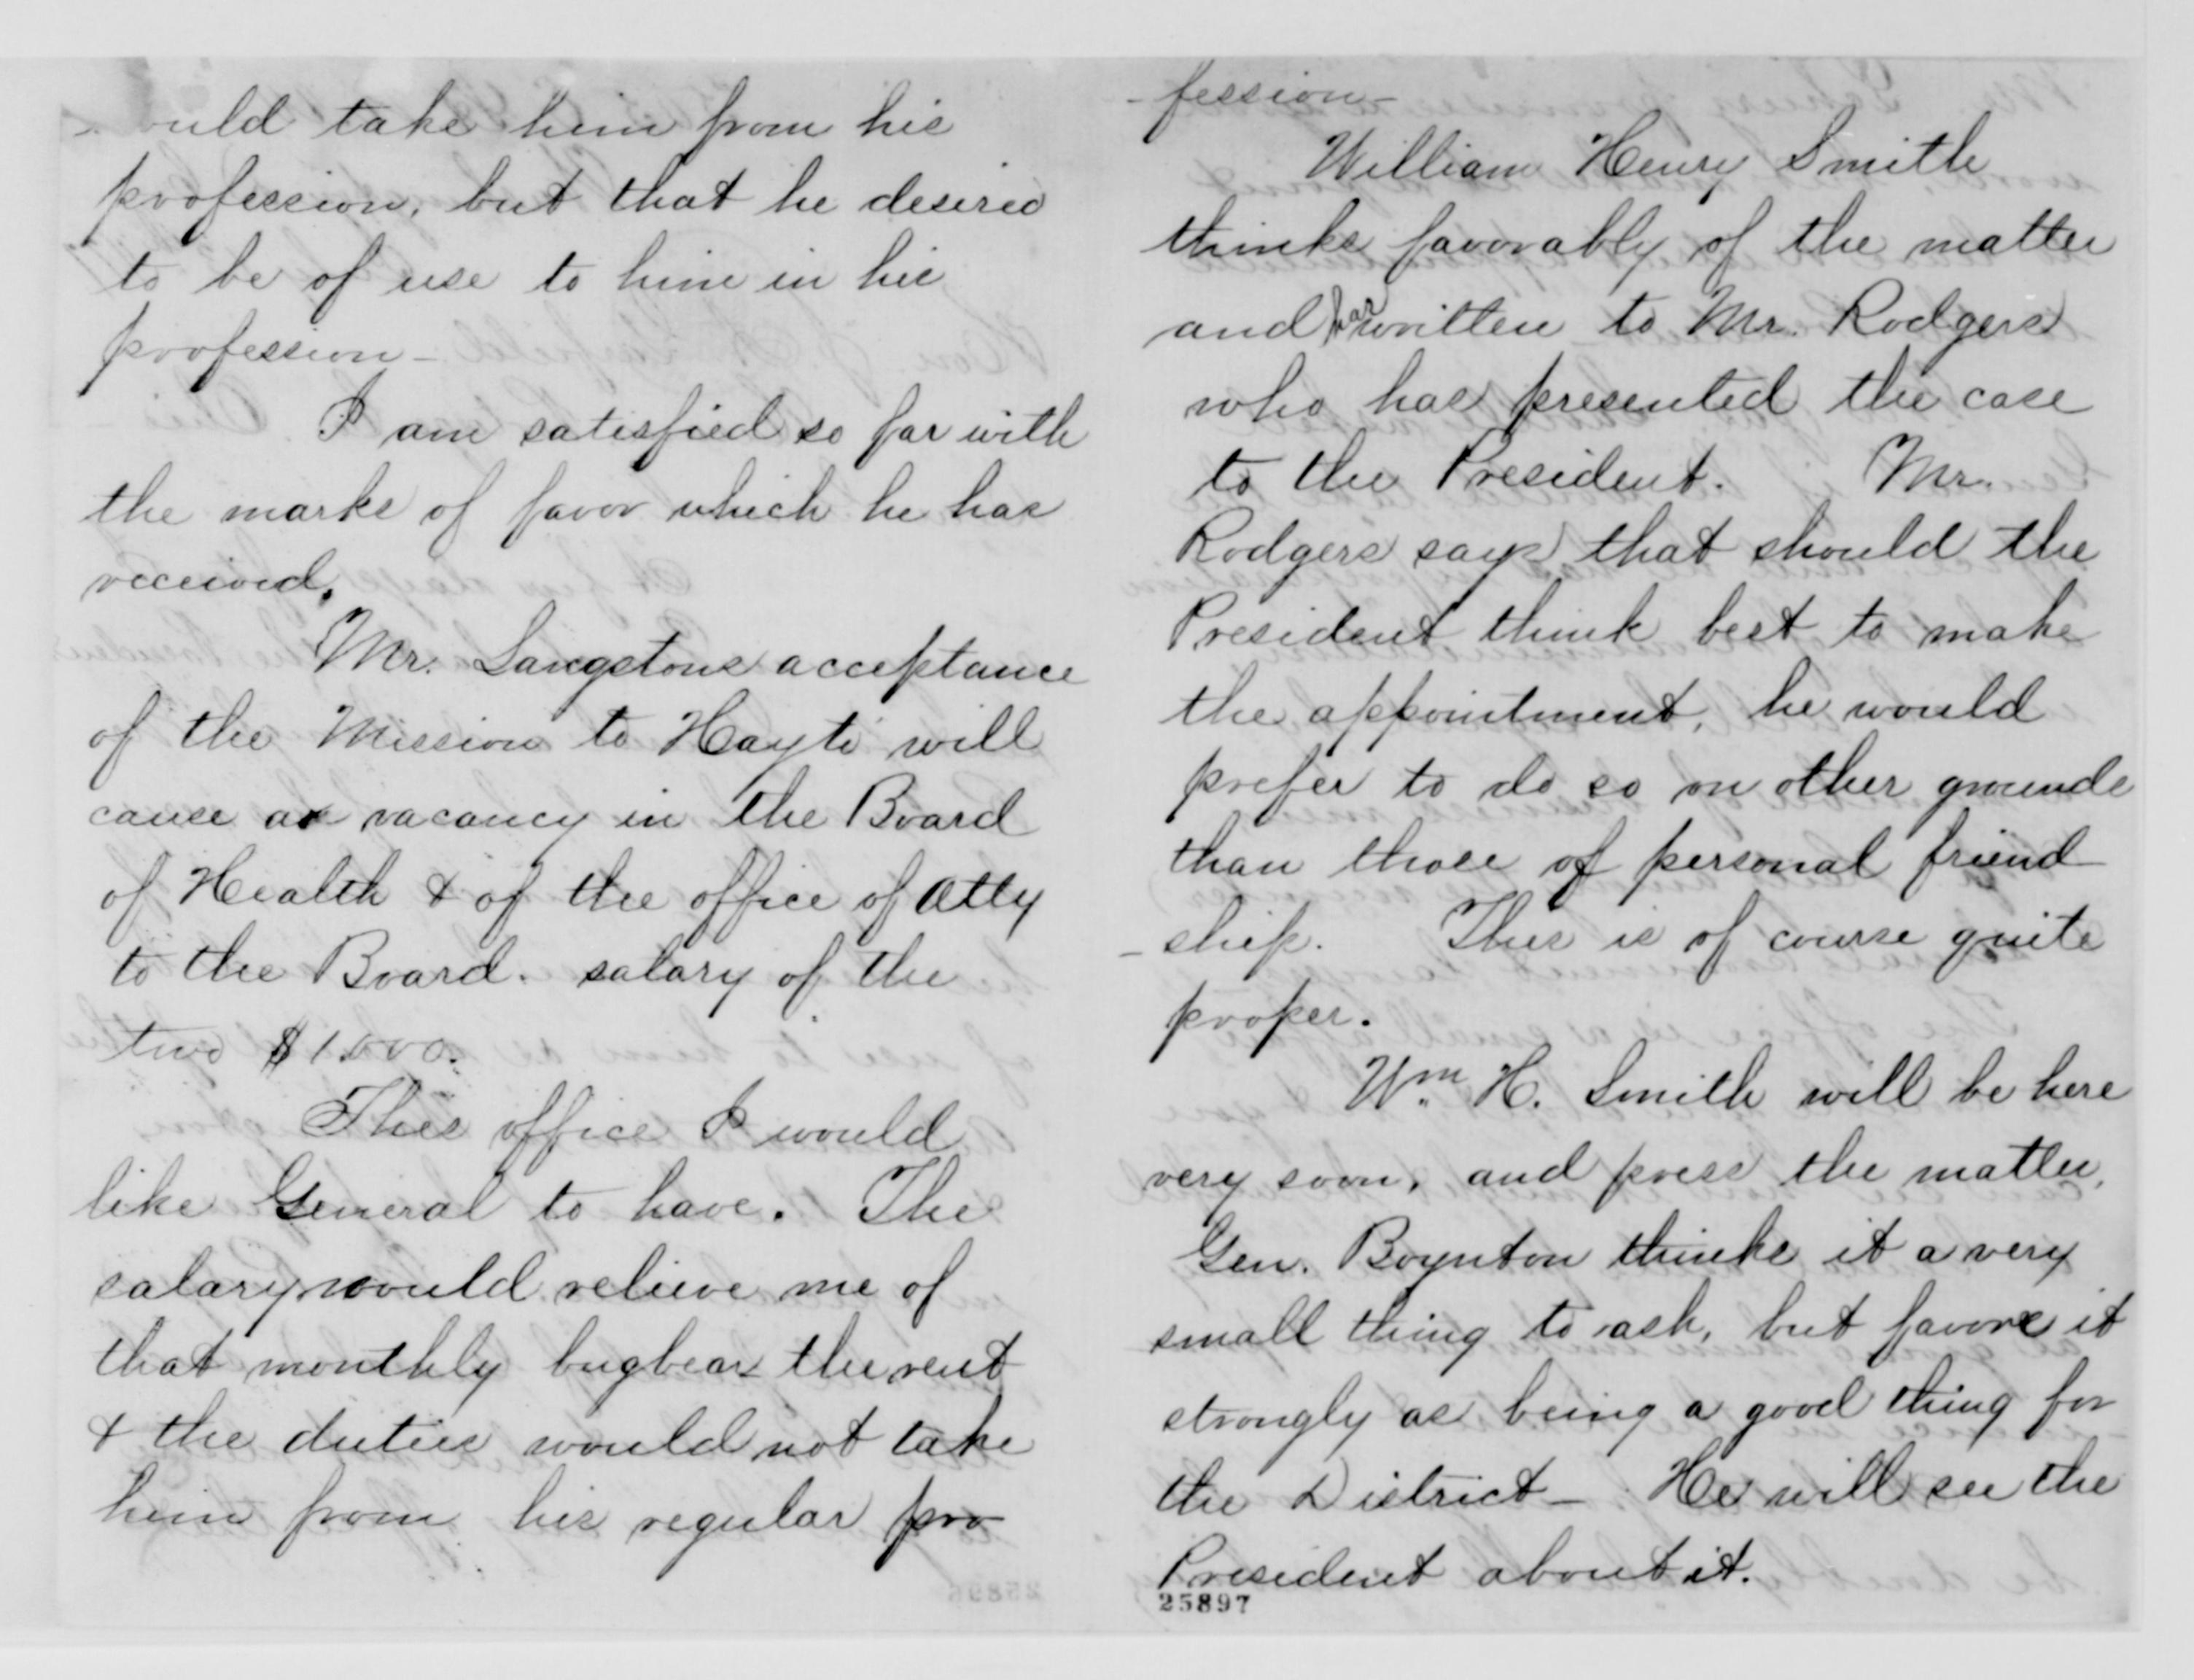 would take him from his
profession, but that he desired
to be of use to him in his
profession-
I am satisfied so far with
the marks of favor which he has
received.
Mr. Langstons acceptance
of the Mission to Hayti will
cause a vacancy in the Board
of Health & of the office of Atty
to the Board. salary of the
two $1.000.
This office I would
like General to have. The
salary would relieve me of
that monthly bugbear the rent
& the duties would not take
him from his regular pro
-fession-
William Henry Smith
thinks favorably of the matter
and has written to Mr. Rodgers
who has presented the case
to the President. Mr.
Rodgers says that should the
President think best to make
the appointment, he would
prefer to do so on other grounds
than those of personal friend
-ship. This is of course quite
proper.
Wm. H. Smith will be here
very soon, and press the matter.
Gen. Boynton thinks it a very
small thing to ask, but favors it
strongly as being a good thing for
the District- He will see the
President about it.
25897